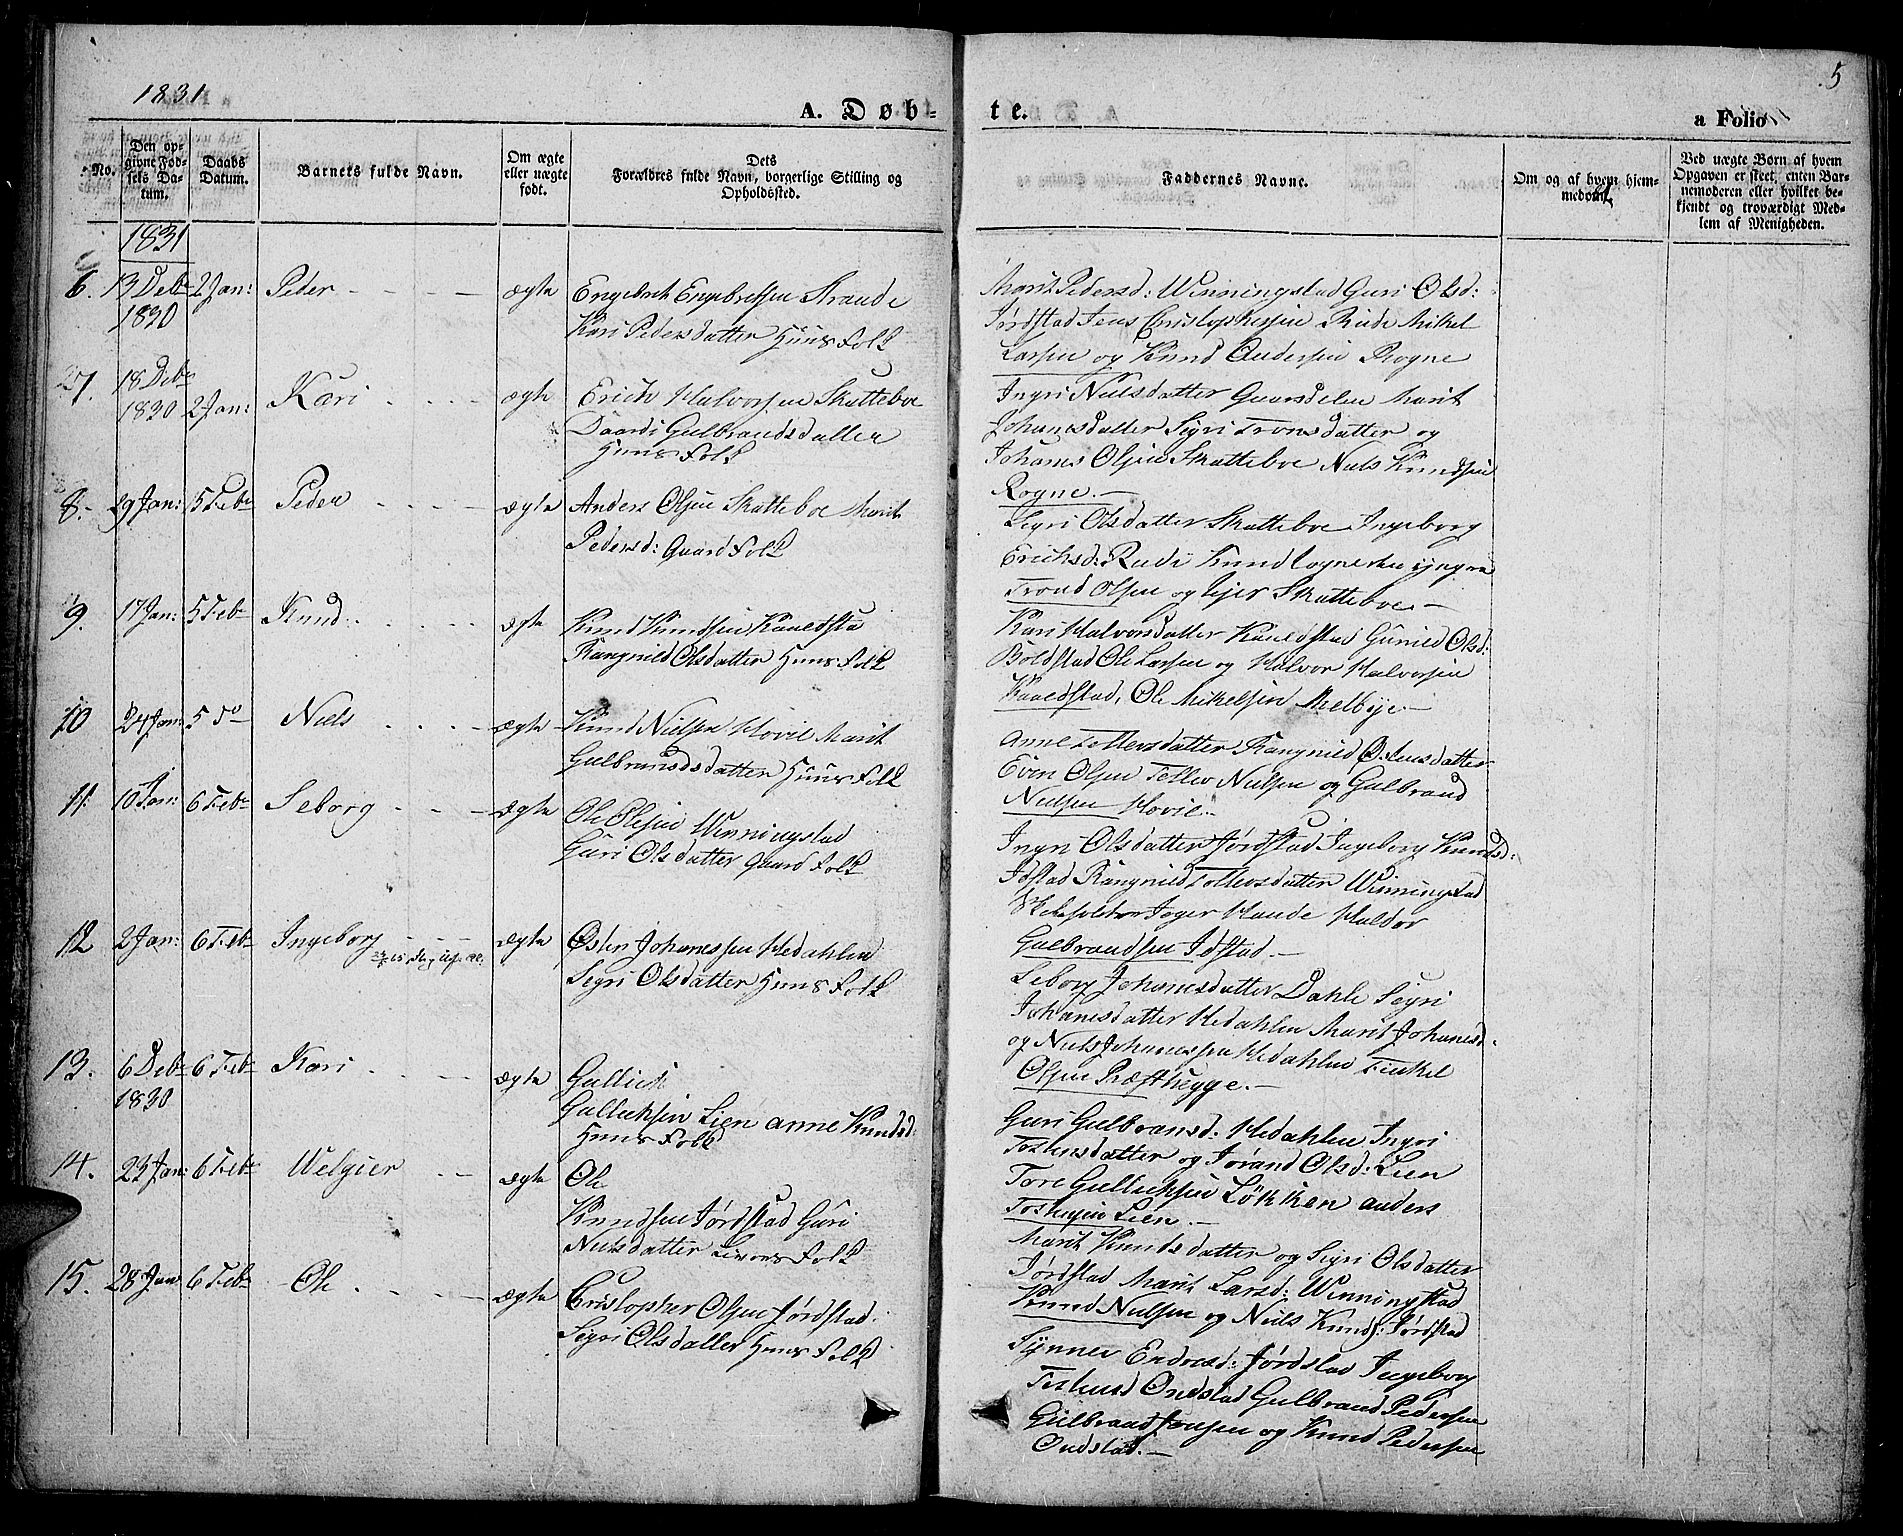 1831
5
A. Døb-
te.
a Folio
No.
Den op-
givne Fød-
sels Da-
tum.
Daabs
Datum.
Barnets fulde Navn.
Om ægte
eller uægte
født.
Dets
Forældres fulde Navn, borgerlige Stilling og
Opholdssted.
Faddernes Navne.
Om og af hvem hjem-
medøbt.
Ved uægte Børn af hvem
Opgaven er skeet, enten Bar-
nemoderen eller hvilket be-
kjendt og troværdigt Med-
lem af Menigheden.
1831
6. 13 Debr 2 Jan: Peder ægte Engebret Engebretsen Strande
1830 Kari Pedersdatter Huus Folk
Marit Pedersd: Winningstad Guri Olsd:
Jørdstad Jens Cristophersen Rude Mikel
Larsen og Knud Andersen Rogne
7. 18 Debr Kari ægte Erich Halvorsen Skatteboe
1830 2 Jan: Gulbrandsdatter
Huus Folk
Ingri Nielsdatter Marit
Johanesdatter Segri Tronsdatter og
Johanes Olsen Skatteboe Niels Knudsen
Rogne.—
8. 29 Jan: 5 Febr Peder ægte Anders Olsen Skatteboe Marit
Pedersd: Gaard Folk
Segri Olsdatter Skatteboe Ingeborg
Erichsd: Rudi Knud
Trond Olsen og Skatteboe.—
9. 17 Jan: 5 Febr Knud ægte Knud Knudsen Kaaldsta
Rangnild Olsdatter Huus Folk
Kari Halvorsdatter Kaaldstad Gunild Olsd:
Boldstad Ole Larsen og Halvor Halvorsen
Kaaldstad, Ole Mikelsen Melbye.—
10 24 Jan: 5 do Niels ægte Knud Nielsen Hovil Marit
Gulbrandsdatter Huus Folk
Anne Tollevsdatter Rangnild Ostensdatter
Even Olsen Tellev Nielsen og Gulbrand
Nielsen Hovil.
11. 10 Jan: 6 Febr Seborg ægte Ole Olsen Winningstad
Guri Olsdatter Gaard Folk
Ingri Olsdatter Jørdstad Ingeborg Knudsd:
Idstad Rangnild Tollevsdatter Winningstad
Haude Haldor
Gulbrandsen Idstad.—
12 2 Jan: 6 Febr Ingeborg ægte Østen Johanessen Hedahlen
Segri Olsdatter Huus Folk
Seborg Johanesdatter Dahle Segri
Johanesdatter Hedahlen Marit Johanesd:
og Niels Johanessen Hedahlen Tinkel
Olsen Præsthegge.—
13. 6 Debr 6 Febr Kari ægte Gullick
1830 Gullicksen Lien Anne Knudsd:
Huus Folk
Guri Gulbransd: Hedahlen Ingri
Tostensdatter og Jørand Olsd: Lien
Tore Gullicksen Løkken Anders
Tostensen Lien.—
14. 23 Jan: 6 Febr Welgier ægte Ole
Knudsen Jørdstad Guri
Nielsdatter Folk
Marit Knudsdatter og Segri Olsdatter
Jørdstad Marit Larsd: Winningstad
Knud Nielsen og Niels Knuds: Jørdstad
15. 28 Jan 6 Febr Ole ægte Cristopher Olsen Jørdstad.
Segri Olsdatter Huus Folk
Synnev Endresd: Jørdstad Ingeborg
Ondstad Gulbrand Pedersen
Gulbrand Jensen og Knud Pedersen
Ondstad.—